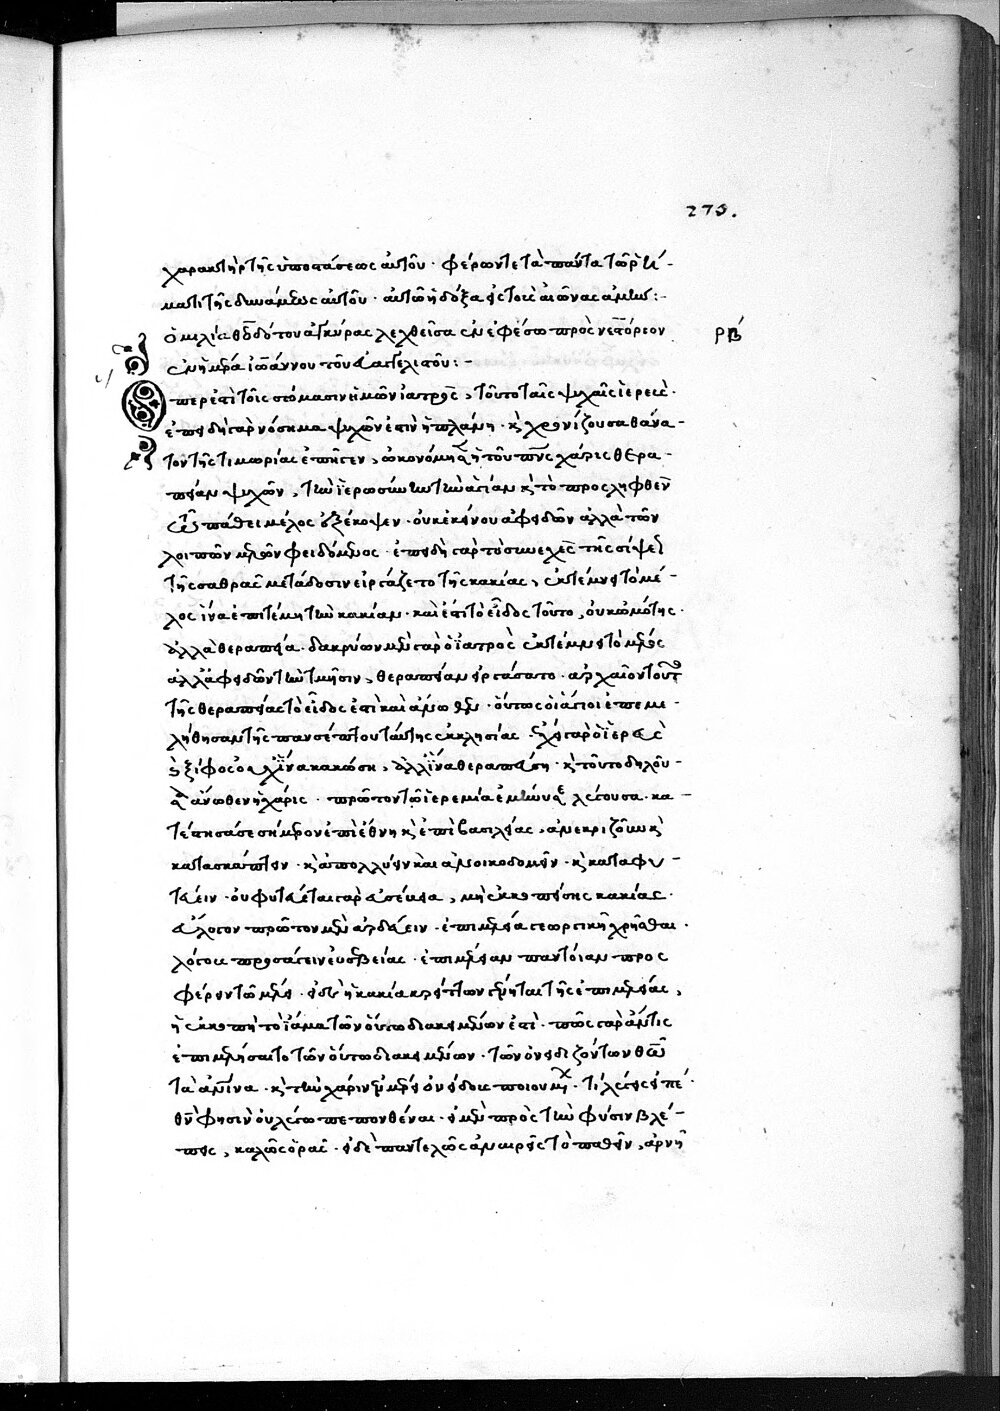 275.
χαρακτὴρ τῆς ὑποστάσεως αὐτοῦ · φέρων τε τὰ πάντα τῷ ῥή-
ματι τῆς δυνάμεως αὐτοῦ · αὐτῷ ἡ δόξα εἰς τοὺς αἰῶνας ἀμήν :-
ὁμιλία θεοδότου ἀγκύρας λεχθεῖσα ἐν ἐφέσω πρὸς νεστόριον
ρβ
ἐν ἡμέρα ἰωάννου τοῦ εὐαγγελιστοῦ :-
Ὅπερ ἐστὶ τοῖς στόμασιν ἡμῶν ἰατρὸς, τοῦτο ταῖς ψυχαῖς ἱερεὺς ·
ἐπειδὴ γὰρ νόσημα ψυχῶν ἐστὶν ἡ πλάνη · κ χρονίζουσα θάνα-
τον τῆς τιμωρίας ἐπῆγεν, ὠκονόμησεν ἡ τοῦ πνς χάρις θερα-
πείαν ψυχῶν, τὴν ἱερωσύνην τὴν ἁγίαν κ τὸ προσληφθὲν
τῶ πάθει μέλος ἐξέκοψεν · οὐκ ἐκείνου ἀφειδῶν ἀλλὰ τῶν
λοιπῶν μελῶν φειδόμενος · ἐπειδὴ γὰρ τὸ συνεχὲς τῆς σήψεως
τῆς σαθρᾶς μετάδοσιν εἰργάζετο τῆς κακίας, ἐκτέμνει τὸ μέ-
λος ἵνα ἐπιτέμη τὴν κακίαν · καὶ ἔστι τὸ εἶδος τοῦτο, οὐκ ὠμότης ·
ἀλλὰ θεραπεία · δακρύων μὲν γὰρ ὁ ἰατρὸς ἐκτέμνει τὸ μέλος
ἀλλ' ἀφειδῶν τὴν τμῆσιν, θεραπείαν εἰργάσατο · ἀρχαῖον τοῦτο
τῆς θεραπείας τὸ εἶδος ἐστὶ καὶ ἄνωθεν · οὕτως οἱ ἅγιοι ἐπεμε-
λήθησαν τῆς πανσέπτου ταύτης ἐκκλησίας · ἔχει γὰρ ὁ ἱερεὺς
ξίφος οὐχ ἵνα κακώση, ἀλλ' ἵνα θεραπεύση · κ τοῦτο δηλοῦ-
σα ἄνωθεν ἡ χάρις · πρῶτον τῷ ἱερεμία ἐμήνυσε λέγουσα · κα-
τέστησά σε σήμερον ἐπὶ ἔθνη κ ἐπὶ βασιλείας, ἀνεκριζοῦν κ
κατασκάπτειν · κ ἀπολλύειν καὶ ἀνοικοδομεῖν · κ καταφυ-
τεύειν · οὐ φυτεύεται γὰρ εὐσέβεια, μὴ ἐκκοπείσης κακίας ·
εὔλογον πρῶτον μὲν ἀρδεύειν · ἐπιμελεία γεωργικῇ χρῆσθαι ·
λόγοις προσάγειν εὐσεβείας · ἐπιμέλειαν παντοίαν προς
φέρειν τῷ μέλει · εἰ δὲ ἡ κακία κρείττων γένηται τῆς ἐπιμελείας,
ἡ ἐκκοπὴ τὸ ἴαμα τῶν οὕτω διακειμένων ἐστὶ · πῶς γὰρ ἄν τις
ἐπιμελήσαιτο τῶν οὕτω διακειμένων · τῶν ὀνειδιζόντων θεῶ
τὰ ἀνθρώπινα · κ τὴν χάριν ἡμέρας ὄνειδος ποιουμένων · τί λέγεις εἰπέ ·
θν φησὶν οὐ λέγω πεπονθέναι · εἰ μὲν πρὸς τὴν φύσιν βλέ-
πεις, καλῶς ὁρᾶς · εἰ δὲ παντελῶς ἀναιρεῖς τὸ παθεῖν, ἀρνῇ